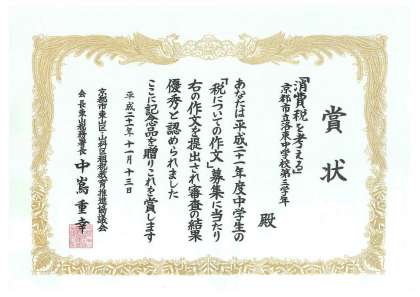 賞状
「消費税を考える」
京都市立洛東中学校第三学年
殿
あなたは平成二十一年度中学生の
「税についての作文」募集に当たり
右の作文を提出され審査の結果
優秀と認められました
ここに記念品を贈りこれを賞します
平成二十一年十一月十三日
京都市東山区・山科区租税教育推進協議会
会長東山税務署長 中嶌重幸